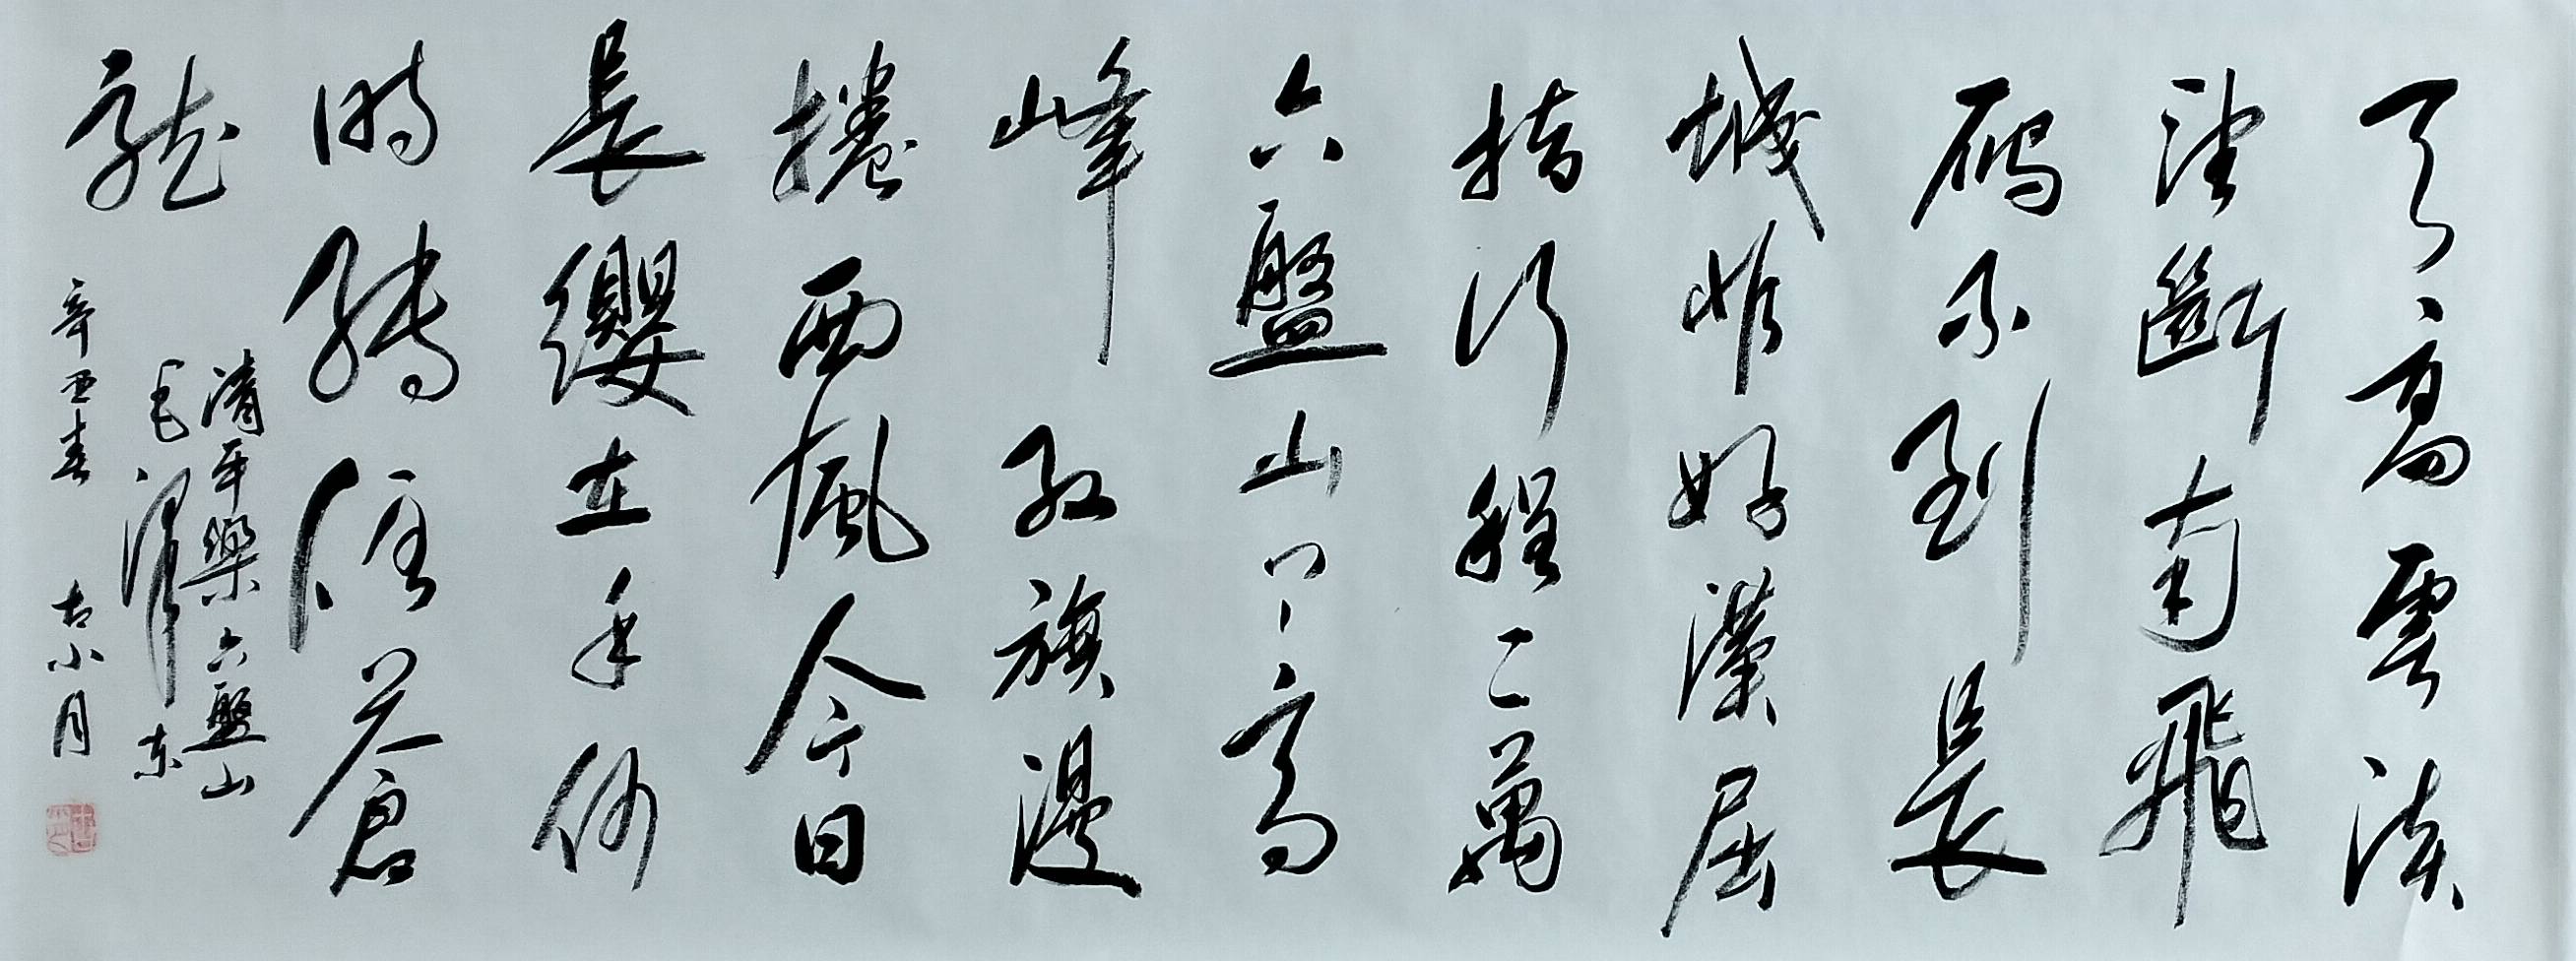 天高雲淡
望斷南飛
雁不到長
城非好漢屈
指行程二萬
六盤山上高
峰红旗漫
捲西風今日
長纓在手何
時縛住蒼
龍
清平樂六盤山
毛澤东
辛丑春 古小月